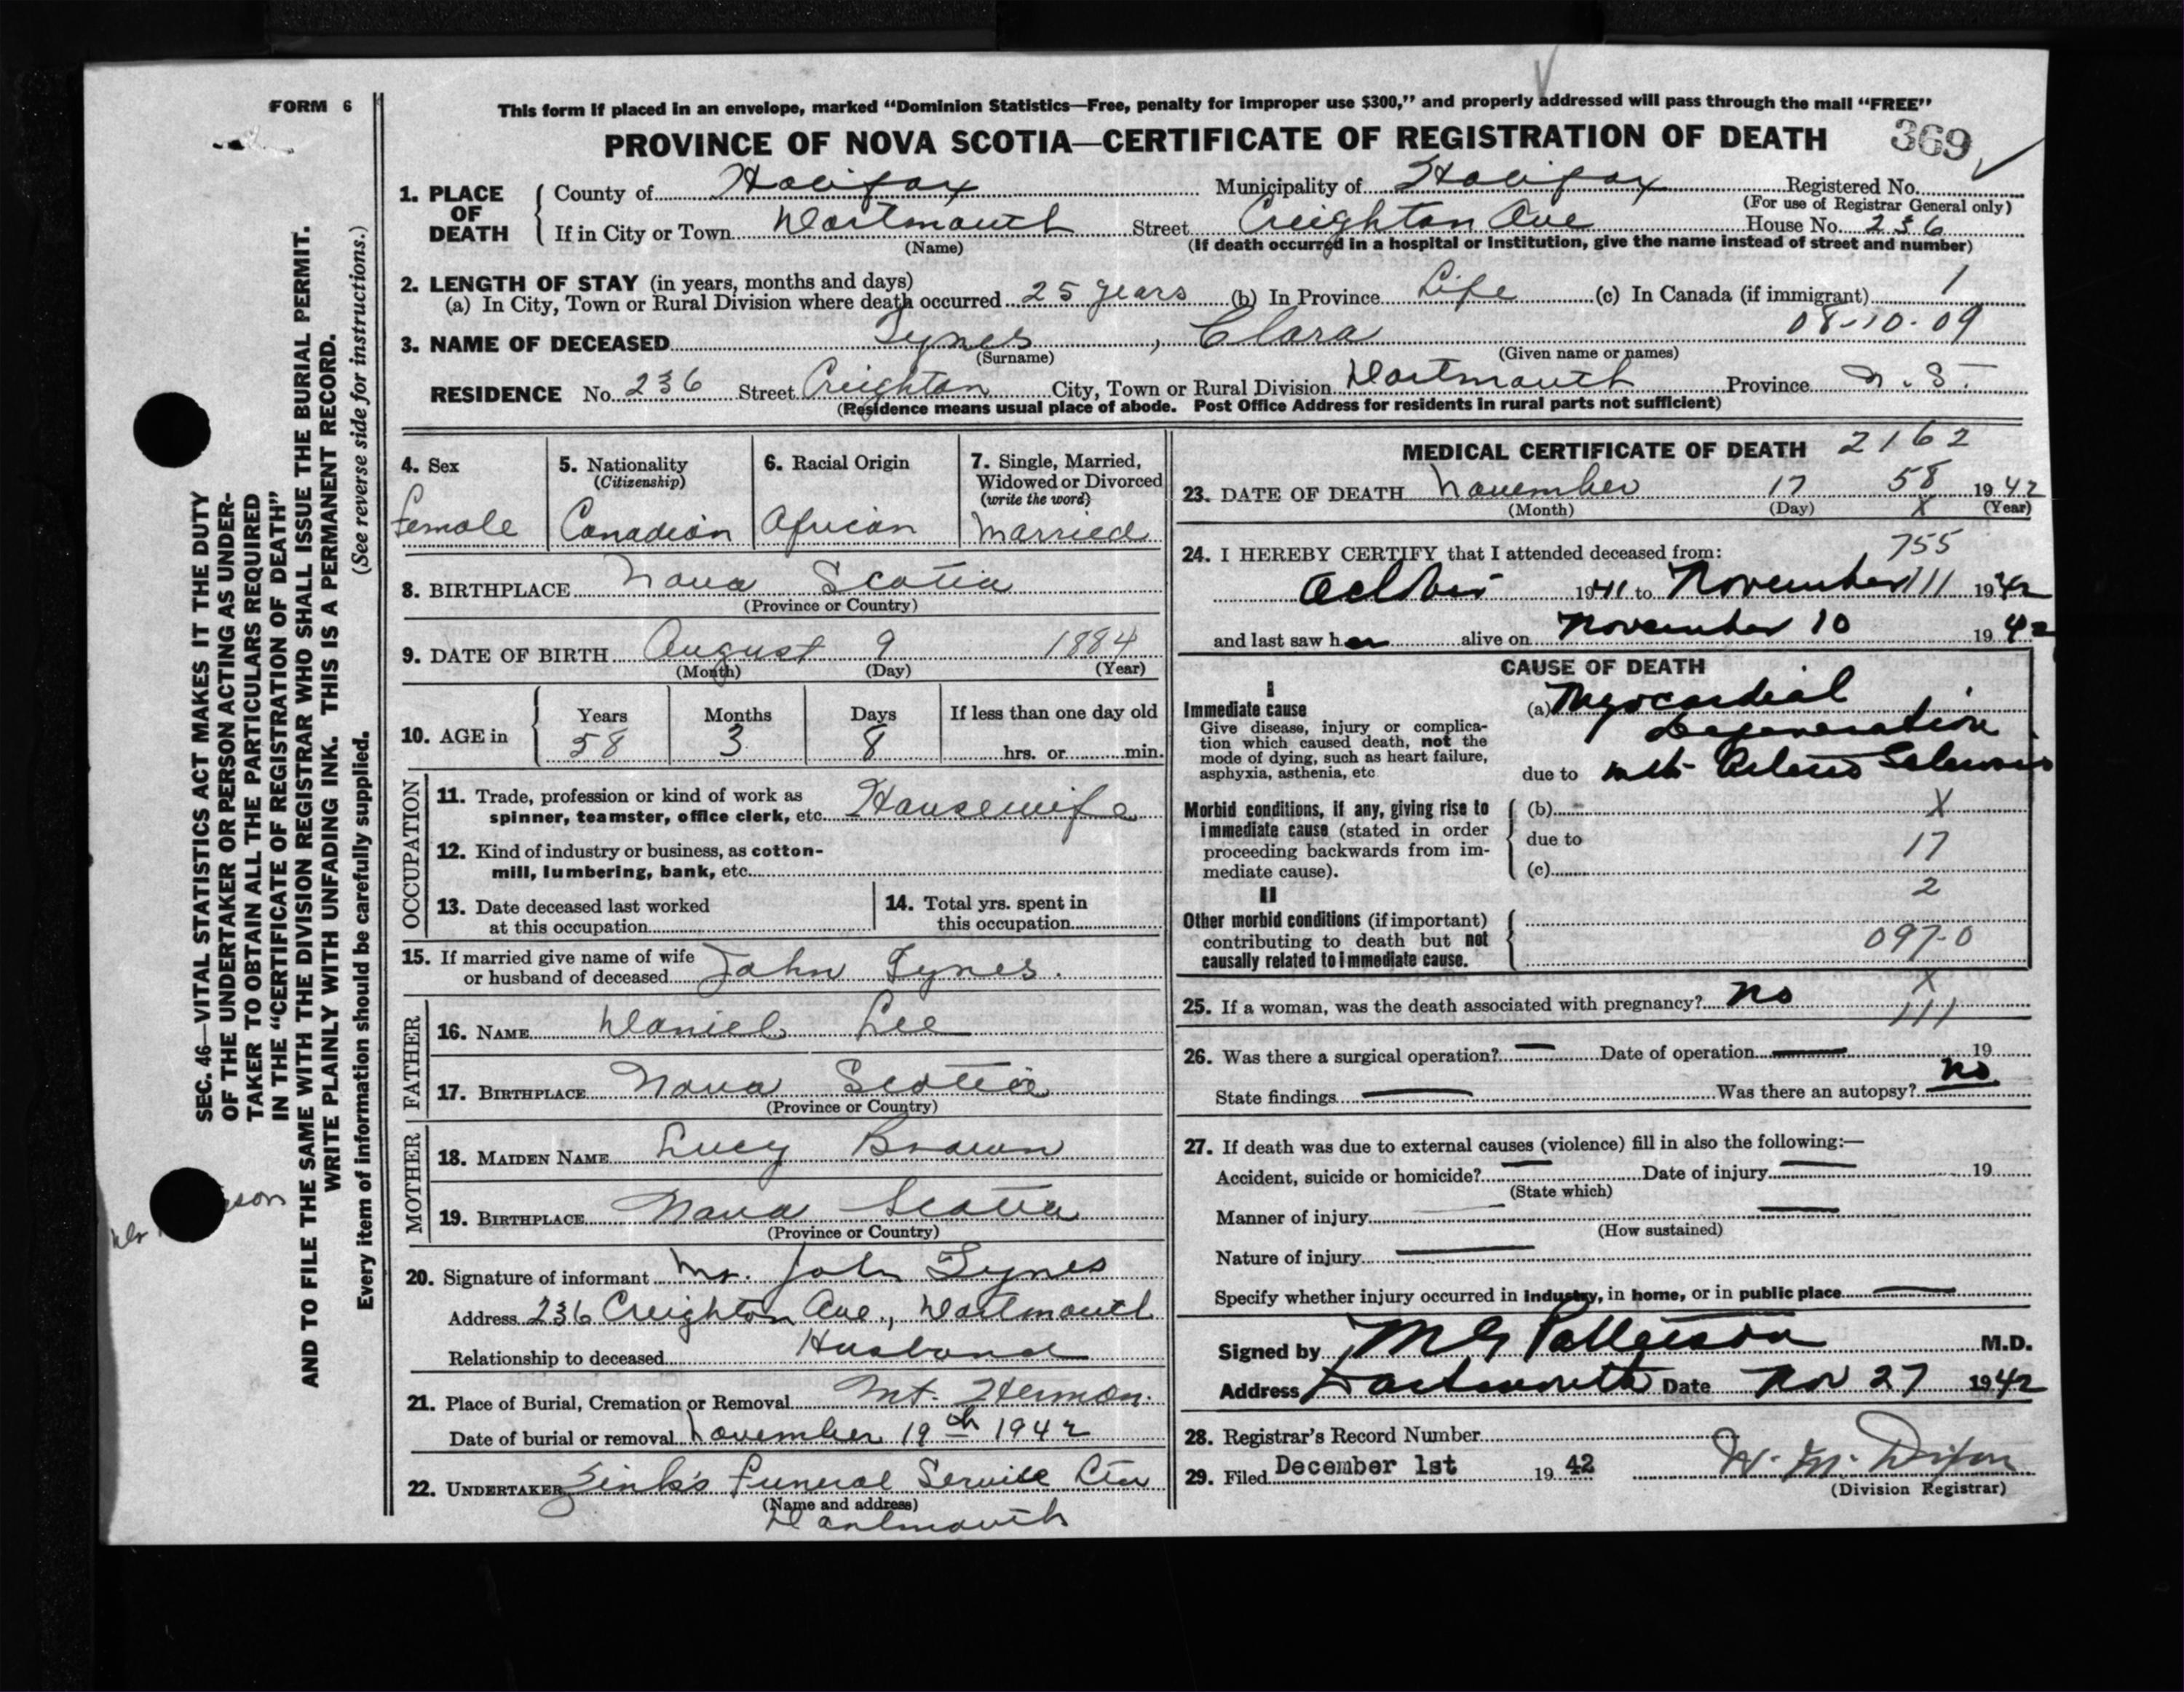 FORM 6
This form if placed in an envelope, marked “Dominion Statistics—Free, penalty for improper use $300,” and properly addressed will pass through the mail “FREE”
PROVINCE OF NOVA SCOTIA—CERTIFICATE OF REGISTRATION OF DEATH 369
1. PLACE OF DEATH
County of Halifax Municipality of Halifax Registered No.
(For use of Registrar General only)
If in City or Town Dartmouth Street Creighton Ave House No. 236
(Name)
(If death occurred in a hospital or institution, give the name instead of street and number)
2. LENGTH OF STAY (in years, months and days)
(a) In City, Town or Rural Division where death occurred 25 years (b) In Province Life (c) In Canada (if immigrant) 1
08-10-09
3. NAME OF DECEASED Tynes, Clara
(Surname) (Given name or names)
RESIDENCE No. 236 Street Creighton City, Town or Rural Division Dartmouth Province N.S.
(Residence means usual place of abode. Post Office Address for residents in rural parts not sufficient)
4. Sex
Female
5. Nationality
(Citizenship)
Canadian
6. Racial Origin
African
7. Single, Married,
Widowed or Divorced
(write the word)
Married
8. BIRTHPLACE Nova Scotia
(Province or Country)
9. DATE OF BIRTH August 9 1884
(Month) (Day) (Year)
10. AGE in
Years Months Days If less than one day old
58 3 8 hrs. or min.
OCCUPATION
11. Trade, profession or kind of work as
spinner, teamster, office clerk, etc. Housewife
12. Kind of industry or business, as cotton-
mill, lumbering, bank, etc.
13. Date deceased last worked
at this occupation
14. Total yrs. spent in
this occupation
15. If married give name of wife
or husband of deceased John Tynes.
FATHER
16. NAME Daniel Lee
17. BIRTHPLACE Nova Scotia
(Province or Country)
MOTHER
18. MAIDEN NAME Lucy Brown
19. BIRTHPLACE Nova Scotia
(Province or Country)
20. Signature of informant Mr. John Tynes
Address 236 Creighton Ave., Dartmouth
Relationship to deceased Husband
21. Place of Burial, Cremation or Removal Mt. Hermon.
Date of burial or removal November 19th 1942
22. UNDERTAKER Zink's Funeral Service Ltd
(Name and address)
Dartmouth
MEDICAL CERTIFICATE OF DEATH 2162
23. DATE OF DEATH November 17 58 1942
(Month) (Day) X (Year)
24. I HEREBY CERTIFY that I attended deceased from: 755
October 1941 to November 1942
and last saw her alive on November 10 1942
CAUSE OF DEATH
I
Immediate cause
Give disease, injury or complica-
tion which caused death, not the
mode of dying, such as heart failure,
asphyxia, asthenia, etc
(a) Myocardial
Degeneration
due to with Arterio Sclerosis
Morbid conditions, if any, giving rise to
immediate cause (stated in order
proceeding backwards from im-
mediate cause).
(b) X
due to 17
(c)
2
II
Other morbid conditions (if important)
contributing to death but not
causally related to immediate cause.
097-0
X
25. If a woman, was the death associated with pregnancy? No
111
26. Was there a surgical operation? — Date of operation — 19
State findings — Was there an autopsy? no
27. If death was due to external causes (violence) fill in also the following:—
Accident, suicide or homicide? — Date of injury — 19
(State which)
Manner of injury —
(How sustained)
Nature of injury —
Specify whether injury occurred in industry, in home, or in public place —
Signed by M G Patterson M.D.
Address Dartmouth Date Nov 27 1942
28. Registrar's Record Number
29. Filed December 1st 1942 W. M. Dixon
(Division Registrar)
SEC. 46—VITAL STATISTICS ACT MAKES IT THE DUTY
OF THE UNDERTAKER OR PERSON ACTING AS UNDER-
TAKER TO OBTAIN ALL THE PARTICULARS REQUIRED
IN THE “CERTIFICATE OF REGISTRATION OF DEATH”
AND TO FILE THE SAME WITH THE DIVISION REGISTRAR WHO SHALL ISSUE THE BURIAL PERMIT.
WRITE PLAINLY WITH UNFADING INK. THIS IS A PERMANENT RECORD.
Every item of information should be carefully supplied. (See reverse side for instructions.)